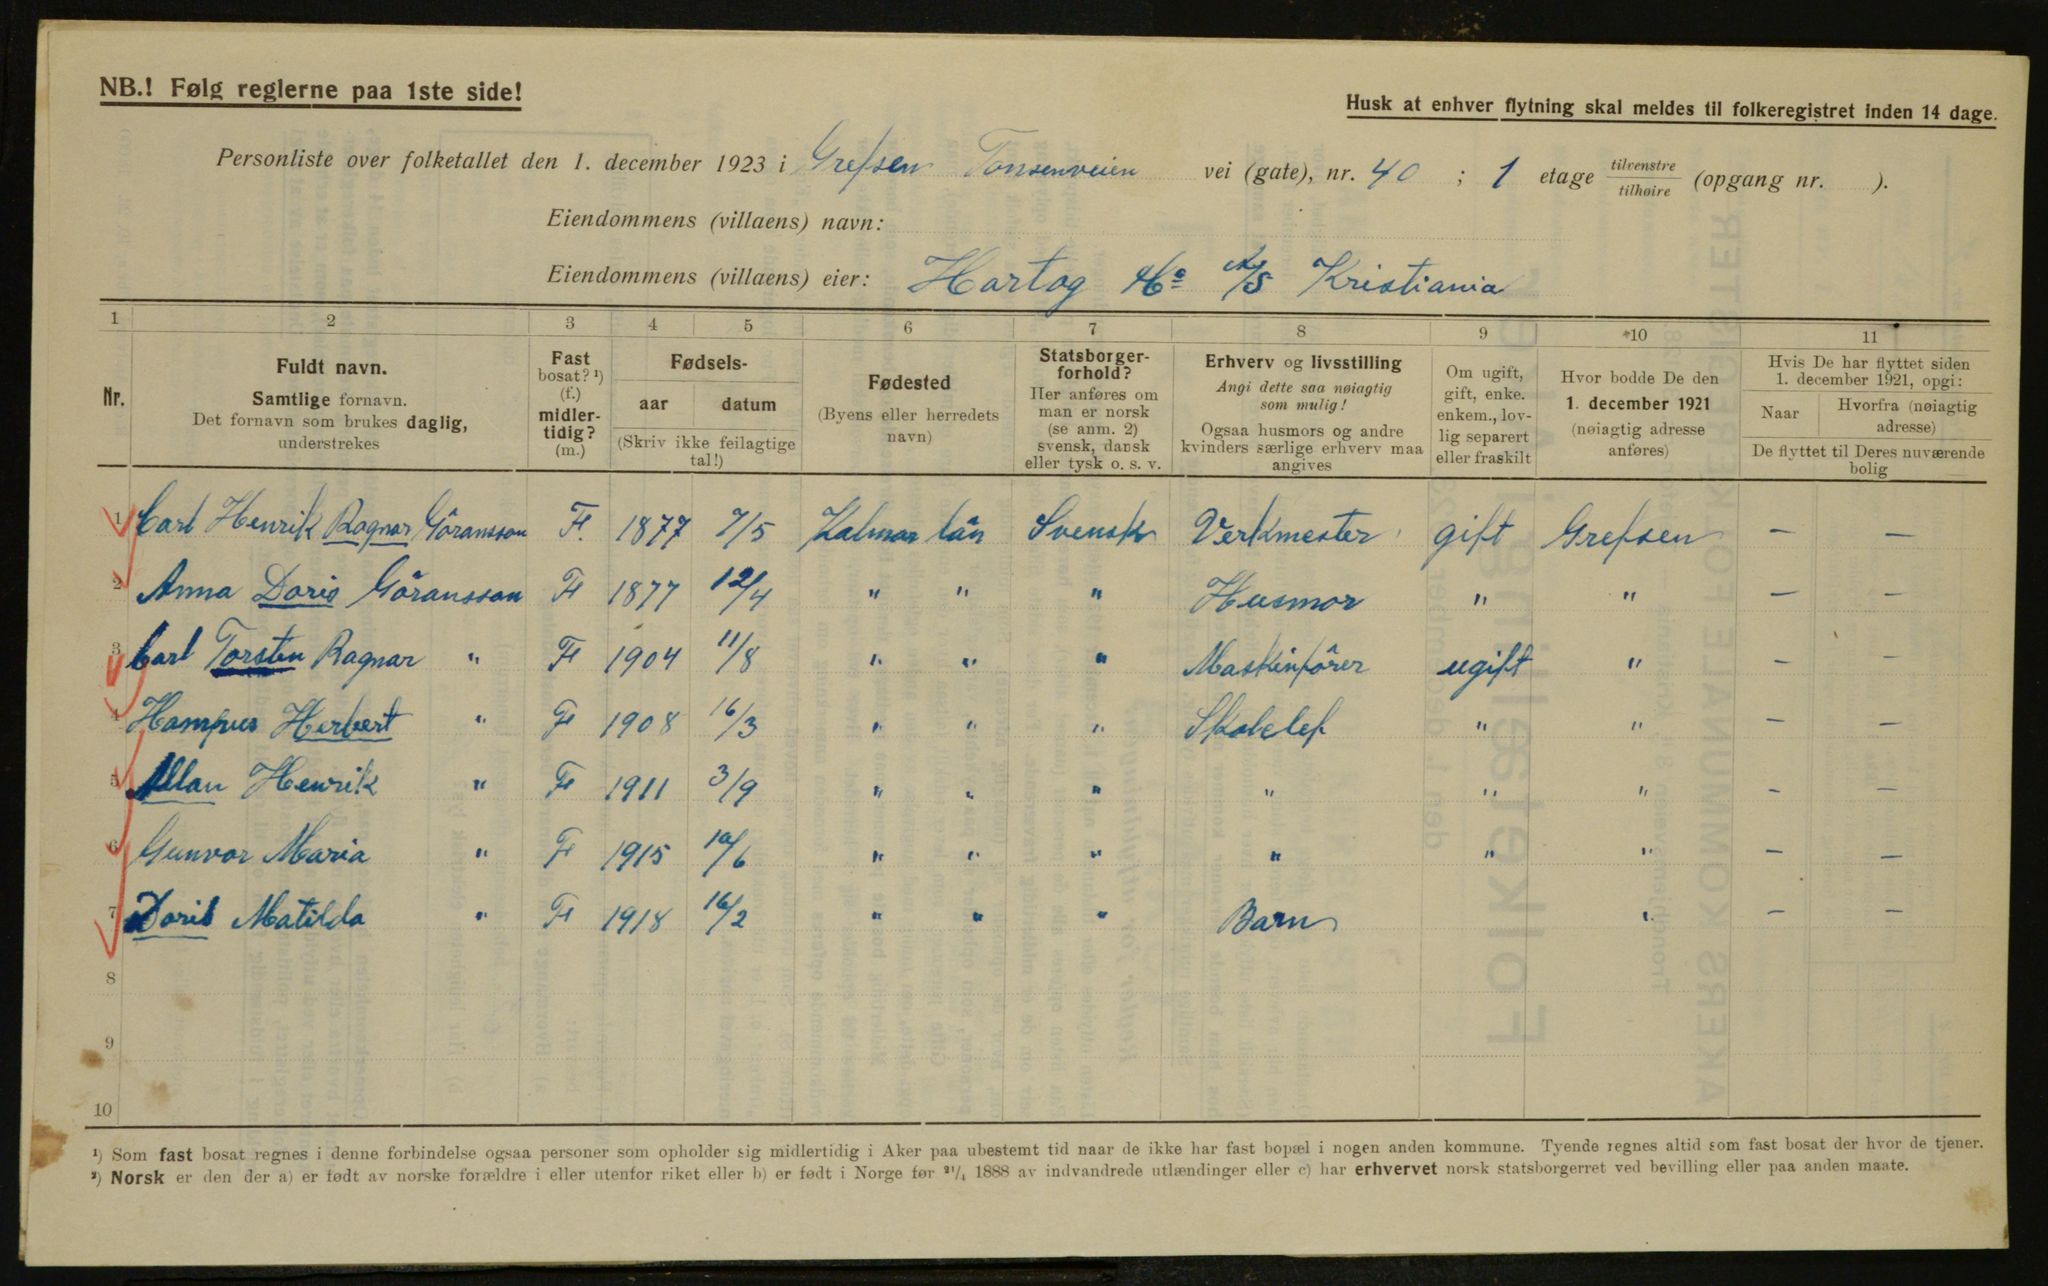 NB.! Følg reglerne paa 1ste side!
Husk at enhver flytning skal meldes til folkeregistret inden 14 dage.
Personliste over folketallet den 1. december 1923 i Grefsen Tonsenveien vei (gate), nr. 40 ; 1 etage tilvenstre / tilhøire (opgang nr. ).
Eiendommens (villaens) navn:
Eiendommens (villaens) eier: Hartog & Co A/S Kristiania
1 2 3 4 5 6 7 8 9 10 11
Nr.
Fuldt navn.
Samtlige fornavn.
Det fornavn som brukes daglig,
understrekes
Fast
bosat? ¹)
(f.)
midler-
tidig?
(m.)
Fødsels-
aar datum
(Skriv ikke feilagtige
tal!)
Fødested
(Byens eller herredets
navn)
Statsborger-
forhold?
Her anføres om
man er norsk
(se anm. 2)
svensk, dansk
eller tysk o. s. v.
Erhverv og livsstilling
Angi dette saa nøiagtig
som mulig!
Ogsaa husmors og andre
kvinders særlige erhverv maa
angives
Om ugift,
gift, enke.
enkem., lov-
lig separert
eller fraskilt
Hvor bodde De den
1. december 1921
(nøiagtig adresse
anføres)
Hvis De har flyttet siden
1. december 1921, opgi:
Naar
Hvorfra (nøiagtig
adresse)
De flyttet til Deres nuværende
bolig
1 Carl Henrik Ragnar Göransson F. 1877 7/5 Kalmar län Svensk Verkmester gift Grefsen — —
2 Anna Doris Göransson F 1877 12/4 " " " Husmor " " — —
3 Carl Torsten Ragnar " F 1904 11/8 " " " Maskinförer ugift " — —
4 Hampus Herbert " F 1908 16/3 " " " Skoleelef " " — —
5 Allan Henrik " F 1911 3/9 " " " " " " — —
6 Gunvor Maria " F 1915 10/6 " " " " " " — —
7 Doris Matilda " F 1918 16/2 " " " Barn " — —
8
9
10
¹) Som fast bosat regnes i denne forbindelse ogsaa personer som opholder sig midlertidig i Aker paa ubestemt tid naar de ikke har fast bopæl i nogen anden kommune. Tyende regnes altid som fast bosat der hvor de tjener.
²) Norsk er den der a) er født av norske forældre i eller utenfor riket eller b) er født i Norge før ²¹/₄ 1888 av indvandrede utlændinger eller c) har erhvervet norsk statsborgerret ved bevilling eller paa anden maate.